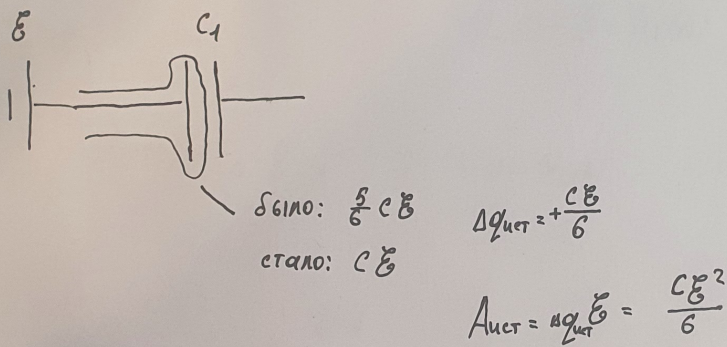 ℰ C₁
было: 5/6 Cℰ
стало: Cℰ
Δqист = + Cℰ/6
Aист = Δqист ℰ = Cℰ²/6